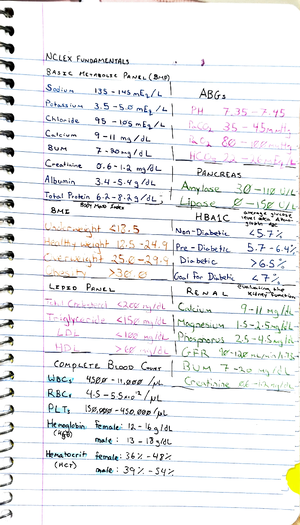 NCLEX FUNDAMENTALS
BASIC METABOLIC PANEL (BMP)
Sodium 135 - 145 mEq/L
Potassium 3.5 - 5.0 mEq/L
Chloride 95 - 105 mEq/L
Calcium 9 - 11 mg/dL
BUM 7 - 20 mg/dL
Creatinine 0.6 - 1.2 mg/dL
Albumin 3.4 - 5.4 g/dL
Total Protein 6.2 - 8.2 g/dL
BMI Body Mass Index
Underweight <18.5
Healthy weight 18.5 - 24.9
Overweight 25.0 - 29.9
Obesity >30.0
Total Cholesterol <200 mg/dL
Triglyceride <150 mg/dL
LDL <100 mg/dL
HDL >60 mg/dL
COMPLETE BLOOD COUNT
WBCs 4500 - 11,000 /μL
RBCs 4.5 - 5.5 /μL
PLTs 150,000 - 450,000 /μL
Hemoglobin female: 12 - 16 g/dL
(Hgb) male: 13 - 18 g/dL
Hematocrit female: 36% - 48%
(HCT) male: 39% - 54%
ABGs
PH 7.35 - 7.45
PaCO2 35 - 45 mmHg
PANCREAS
Amylase 30 - 110 U/L
Lipase 0 - 150 U/L
HBA1C average glucose
Non-Diabetic <5.7%
Pre-Diabetic 5.7 - 6.4%
Diabetic >6.5%
Goal For Diabetic <7%
RENAL Evaluating the
kidney function
Calcium 9 - 11 mg/dL
Magnesium 1.5 - 2.5 mg/dL
Phosphorus 2.5 - 4.5 mg/dL
GFR 90 - 120
BUM 7 - 20 mg/dL
Creatinine